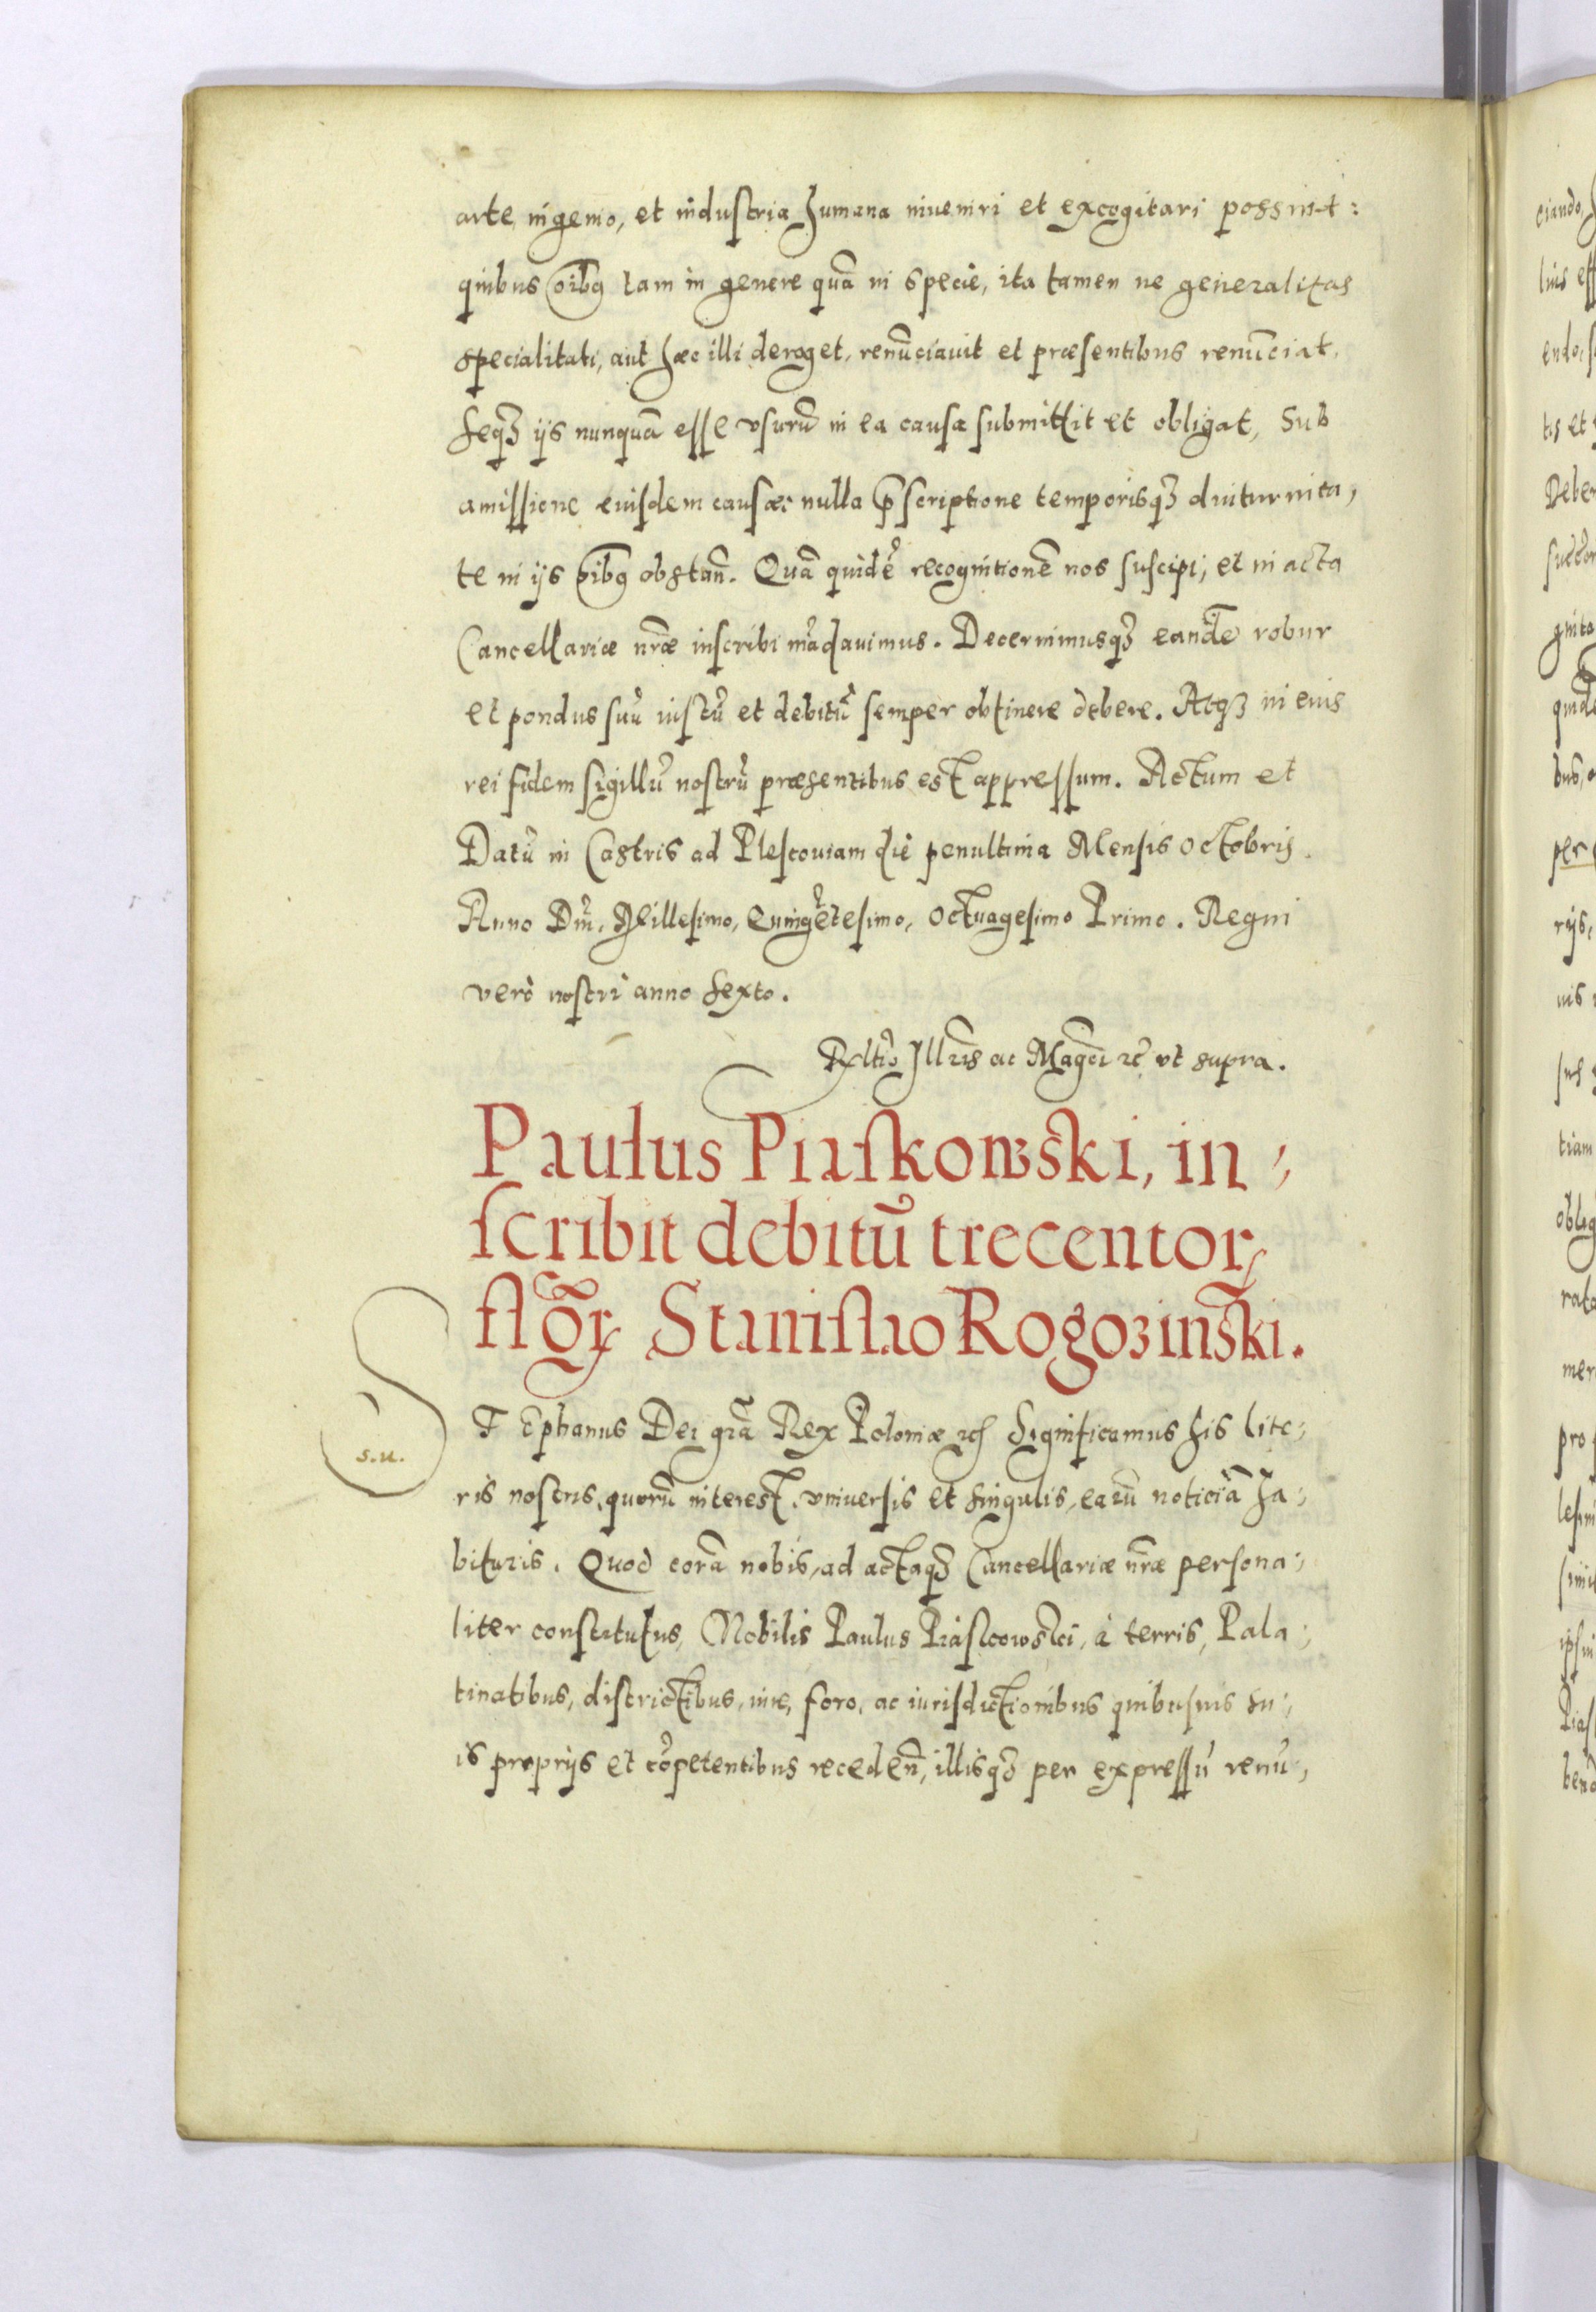 arte, ingenio, et industria humana inveniri et excogitari possint:
quibus oibq tam in genere quã in specie, ita tamen ne generalitas
specialitati, aut hæc illi deroget, renũciavit et præsentibus renũciat,
seqꝫ ijs nunquã esse vsurũ in ea causa submittit et obligat, Sub
amissione eiusdem causæ: nulla p̃scriptione temporisqꝫ diuturnita,
te in ijs oibq obstañ. Quã quidẽ recognitionẽ nos suscipi, et in acta
Cancellariæ nr̃æ inscribi mãdavimus. Decernimusqꝫ eandẽ robur
et pondus suũ iustũ et debitũ semper obtinere debere. Atqꝫ in eius
rei fidem sigillũ nostrũ præsentibus est appressum. Actum et
Datũ in Castris ad Plescoviam die penultima Mensis Octobris.
Anno Dñi, Millesimo, Quingẽtesimo, Octuagesimo Primo. Regni
verò nostri anno sexto.
Rltio Illris ac Magci rc̃ vt supra.
Paulus Piaskowski, in,
scribit debitũ trecentoꝝ
floꝝ Stanislao Rogozinski.
S
s.u.
TEphanus Dei grã Rex Poloniæ rc̃ Significamus his lite,
ris nostris, quorũ interest, vniversis et singulis, earũ noticiã ha,
bituris. Quod corã nobis, ad actaqꝫ Cancellariæ nr̃æ persona,
liter constitutus, Nobilis Paulus Piaskowski, à terris, Pala,
tinatibus, districtibus, iure, foro, ac iurisdictionibus quibusvis su,
is proprijs et cõpetentibus recedeñ, illisqꝫ per expressũ renũ,